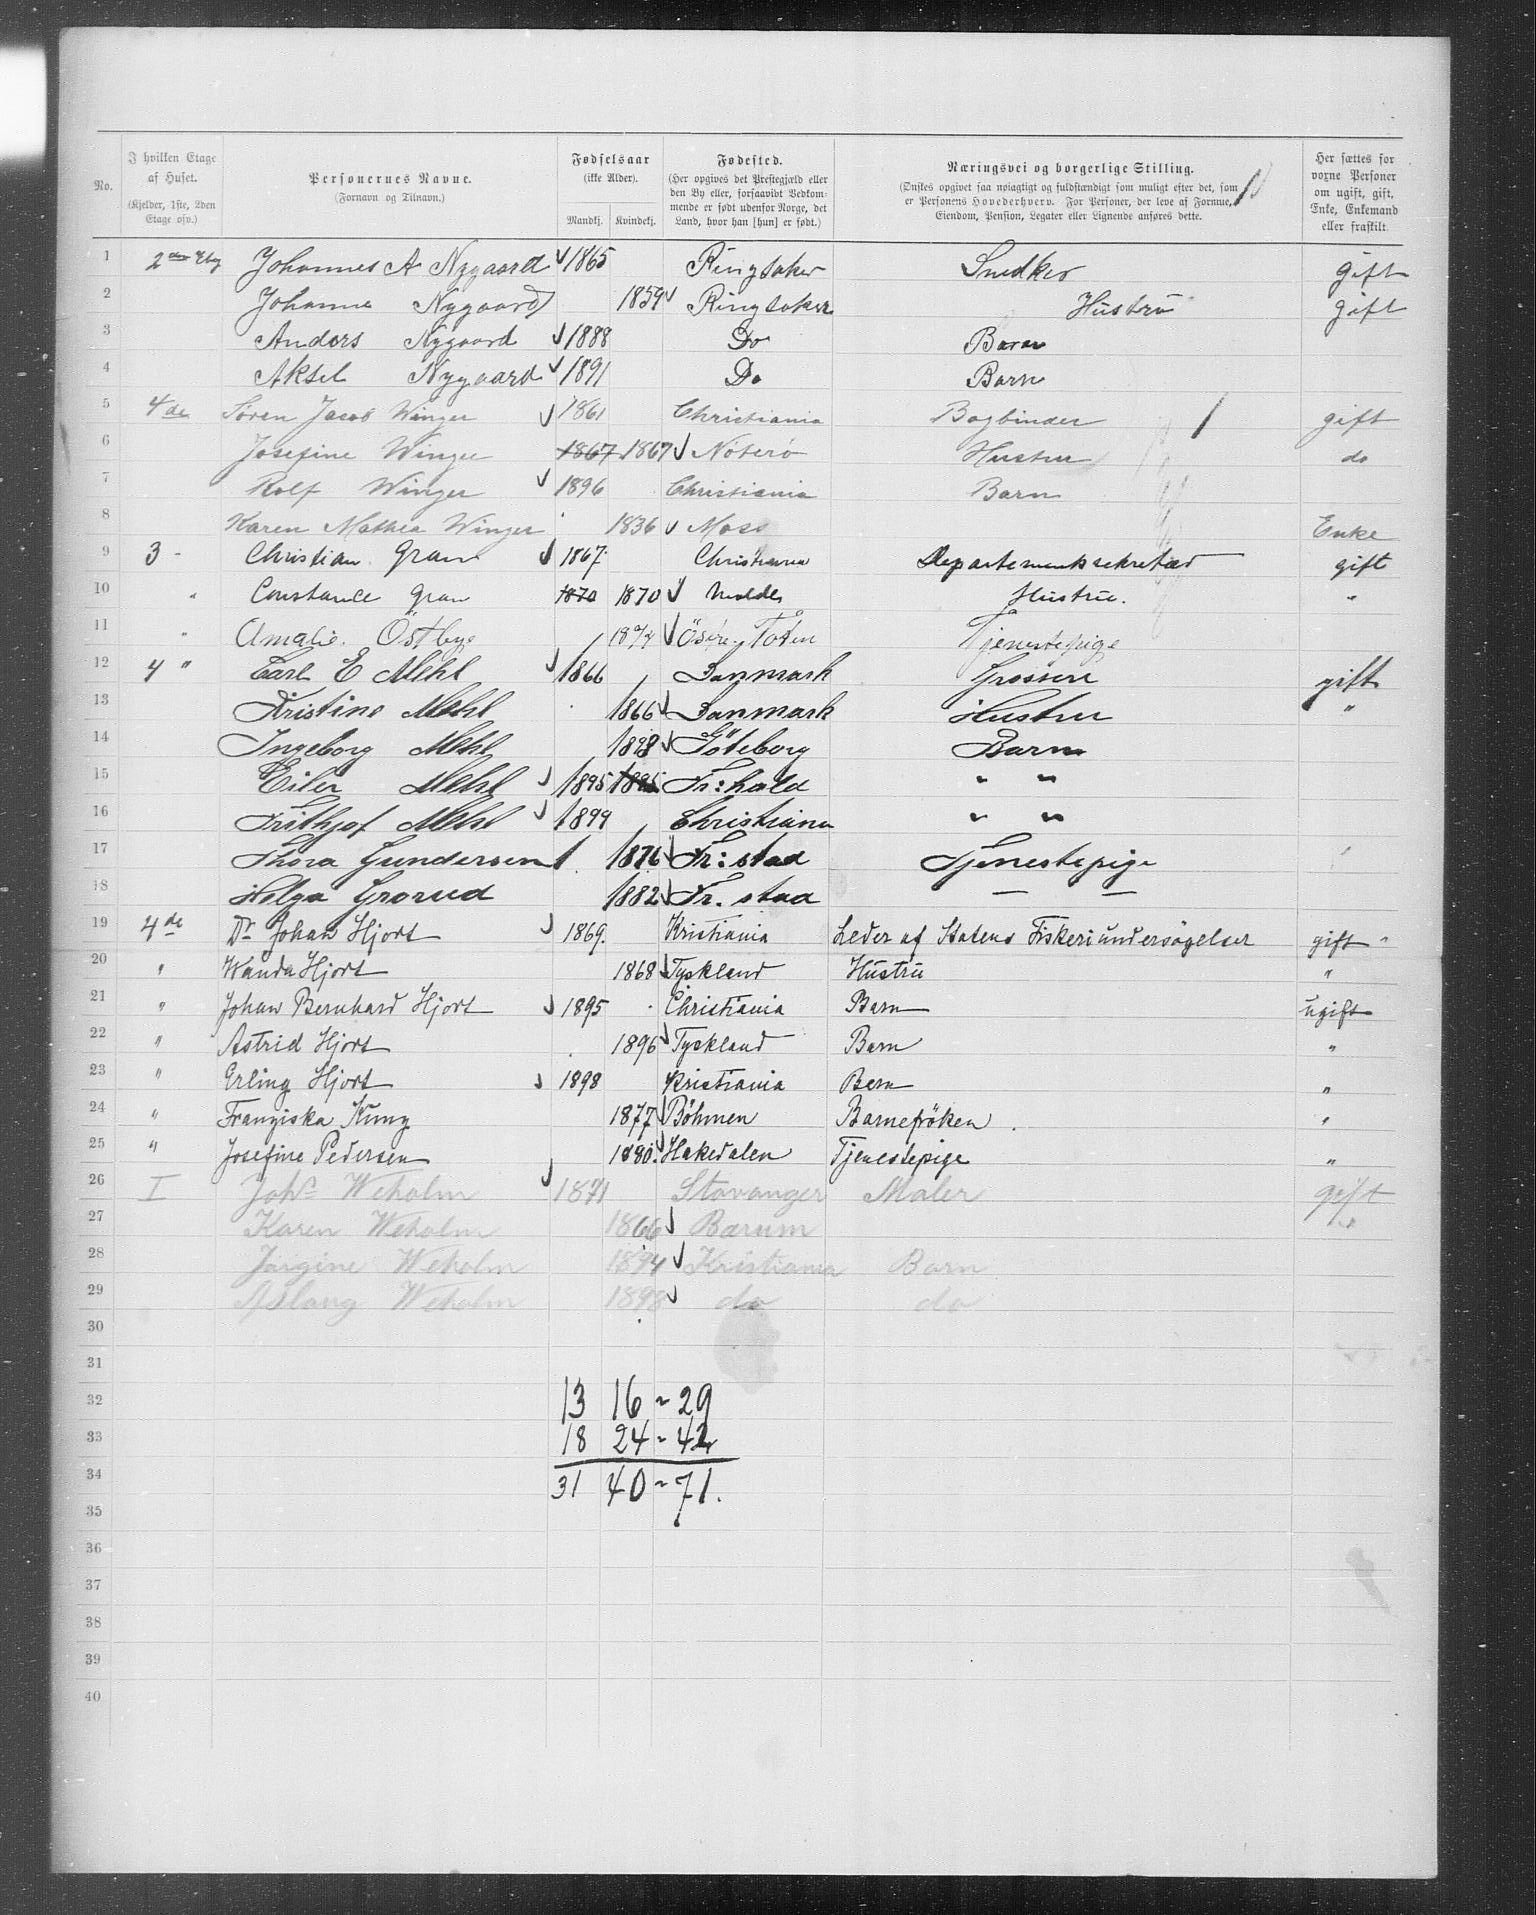 No. I hvilken Etage af Huset. (Kjelder, 1ste, 2den Etage osv.) Personernes Navne. (Fornavn og Tilnavn.) Fødselsaar (ikke Alder). Mandkj. Kvindekj. Fødested. (Her opgives det Prestegjæld eller den By eller, forsaavidt Vedkommende er født udenfor Norge, det Land, hvor han [hun] er født.) Næringsvei og borgerlige Stilling. (Ønskes opgivet saa nøiagtigt og fuldstændigt som muligt efter det, som er Personens Hovederhverv. For Personer, der leve af Formue, Eiendom, Pension, Legater eller Lignende anføres dette. Her sættes for voxne Personer om ugift, gift, Enke, Enkemand eller fraskilt.
1 2den Etg Johannes A Nygaard 1865 Ringsaker Snedker gift
2 Johanne Nygaard 1859 Ringsaker Hustru gift
3 Anders Nygaard 1888 Do Barn
4 Aksel Nygaard 1891 Do Barn
5 4de Søren Jacob Winger 1861 Christiania Bogbinder gift
6 Josefine Winger 1867 1867 Nøterø Hustru do
7 Rolf Winger 1896 Christiania Barn
8 Karen Mathea Winger 1836 Moss Enke
9 3 - Christian Gran 1867 Christiania Departementssekretær gift
10 " Constance Gran 1870 1870 Molde Hustru. "
11 " Amalie Östbye 1874 Östre Toten Tjenestepige
12 4 " Carl E Mehl 1866 Danmark Grosserer gift
13 Kristine Mehl 1866 Danmark Hustru "
14 Ingeborg Mehl 1893 Göteborg Barn
15 Eiler Mehl 1895 1895 Fr:hald " "
16 Frithjof Mehl 1899 Christiania " "
17 Thora Gundersen 1876 Fr:stad Tjenestepige
18 Helga Grorud 1882 Fr. stad — —
19 4de Dr Johan Hjort 1869. Kristiania Leder af Statens Fiskeriundersøgelser gift
20 " Wanda Hjort 1868 Tyskland Hustru "
21 " Johan Bernhard Hjort 1895 Christiania Barn ugift
22 " Astrid Hjort 1896 Tyskland Barn "
23 " Erling Hjort 1898 Kristiania Barn "
24 " Franziska Kunz 1877 Böhmen Barnefröken . "
25 " Josefine Pedersen 1880. Hakedalen Tjenestepige "
26 I Johs Weholm 1871 Stavanger Maler gift
27 Karen Weholm 1866 Bærum "
28 Jørgine Weholm 1894 Kristiania Barn
29 Aslaug Weholm 1898 do do
30
31
32 13 16 = 29
33 18 24 = 42
34 31 40 = 71.
35
36
37
38
39
40